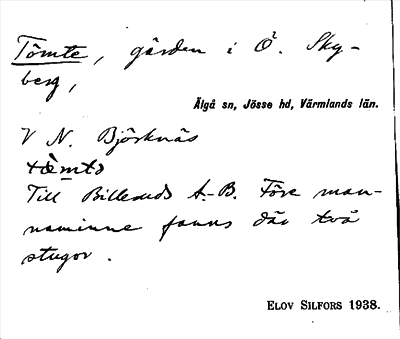 Tômte, gården i Ö. Sky-
berg,
Älgå sn, Jösse hd, Värmlands län.
V N. Björknäs
Till Billeruds A.-B. Före man-
naminne fanns där två
stugor.
ELOV SILFORS 1938.